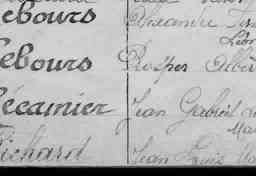 ebours Alexandre
Léon
ebours Prosper Albert
écamier Jean Gabriel
Ma
ichard Jean Louis